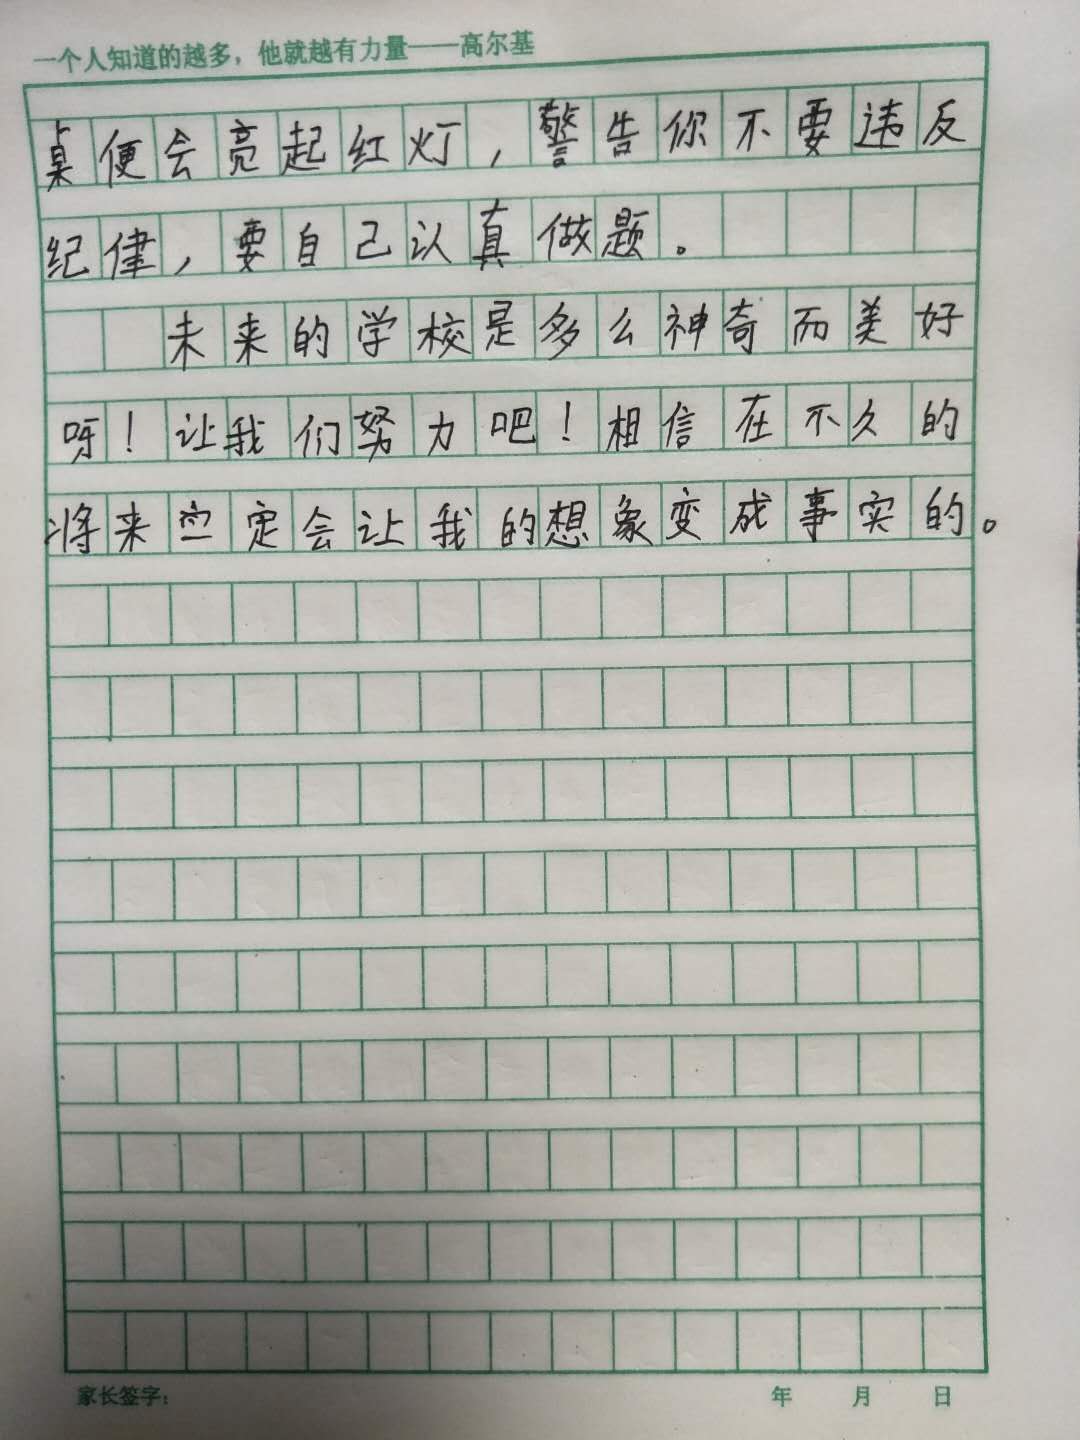 一个人知道的越多，他就越有力量——高尔基
桌便会亮起红灯，警告你不要违反
纪律，要自己认真做题。
未来的学校是多么神奇而美好
呀！让我们努力吧！相信在不久的
将来一定会让我的想象变成事实的。
家长签字： 年 月 日